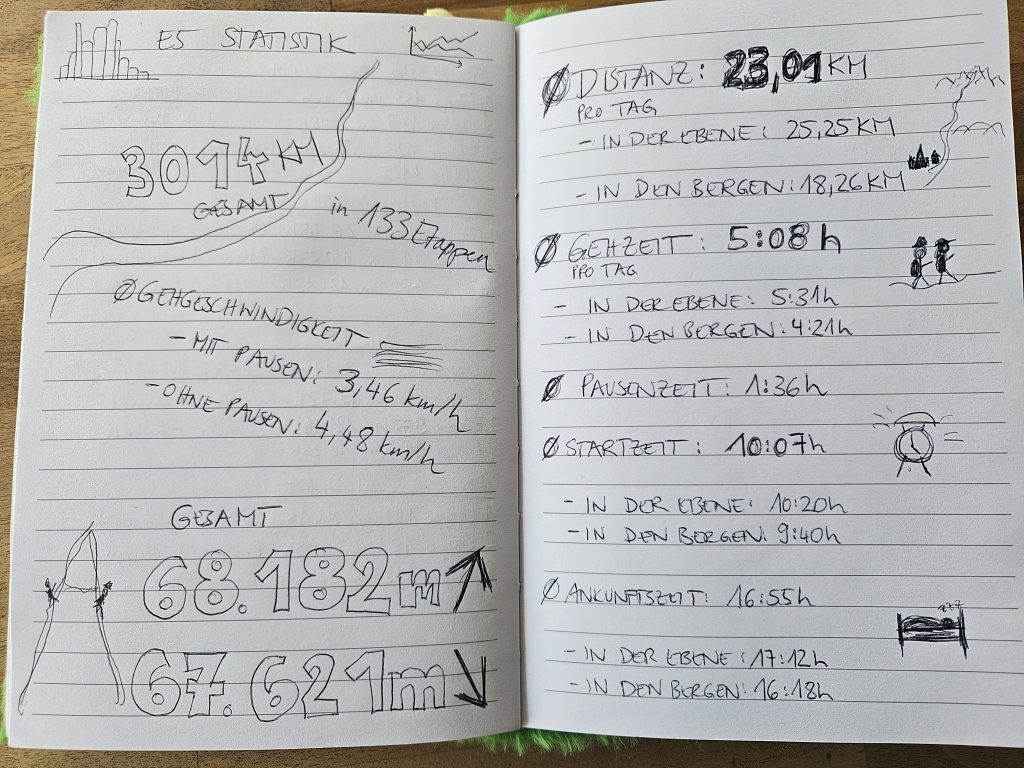 E5 STATISTIK
3014 KM
GESAMT
in 133 Etappen
Ø GEHGESCHWINDIGKEIT
- MIT PAUSEN: 3,46 km/h
- OHNE PAUSEN: 4,48 km/h
GESAMT
68.182m ↑
67.621m ↓
Ø DISTANZ: 23,01 KM
PRO TAG
- IN DER EBENE: 25,25 KM
- IN DEN BERGEN: 18,26 KM
Ø GEHZEIT: 5:08 h
PRO TAG
- IN DER EBENE: 5:31h
- IN DEN BERGEN: 4:21h
Ø PAUSENZEIT: 1:36h
Ø STARTZEIT: 10:07h
- IN DER EBENE: 10:20h
- IN DEN BERGEN: 9:40h
Ø ANKUNFTSZEIT: 16:55h
zzz
- IN DER EBENE: 17:12h
- IN DEN BERGEN: 16:18h